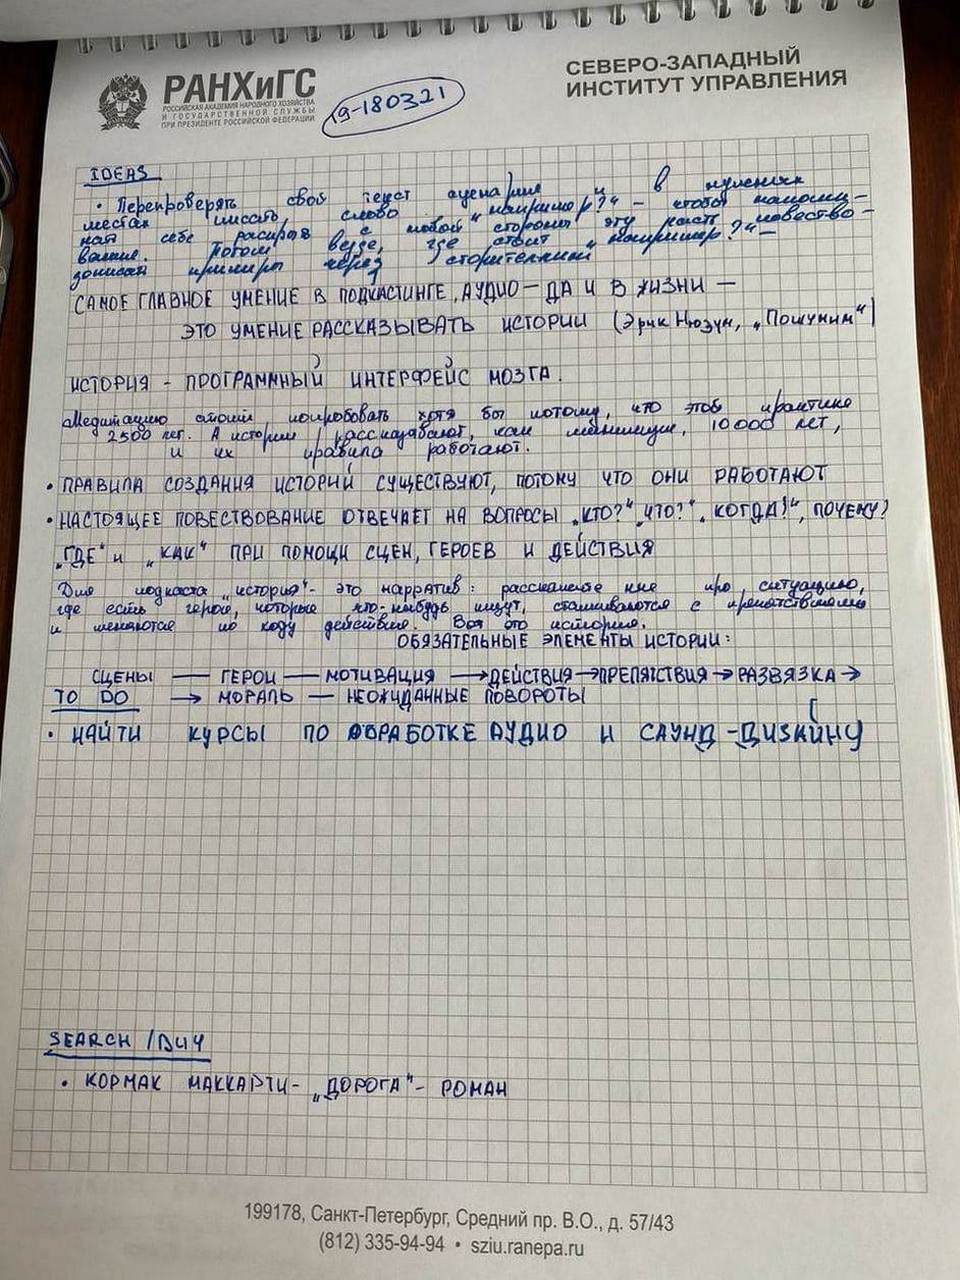 РАНХиГС
РОССИЙСКАЯ АКАДЕМИЯ НАРОДНОГО ХОЗЯЙСТВА
И ГОСУДАРСТВЕННОЙ СЛУЖБЫ
ПРИ ПРЕЗИДЕНТЕ РОССИЙСКОЙ ФЕДЕРАЦИИ
СЕВЕРО-ЗАПАДНЫЙ
ИНСТИТУТ УПРАВЛЕНИЯ
19-180321
IDEAS
• Перепроверять свой текст сценария и в нужных
местах писать слово „например?“ – чтобы напоми-
нать себе раскрыв с новой стороны эту часть повество-
вания. Потом везде, где стоит „например?“ –
дописат примеры через сторителлинг
САМОЕ ГЛАВНОЕ УМЕНИЕ В ПОДКАСТИНГЕ, АУДИО – ДА И В ЖИЗНИ –
ЭТО УМЕНИЕ РАССКАЗЫВАТЬ ИСТОРИИ (Эрик Нюзум, „Пошумим“)
ИСТОРИЯ – ПРОГРАММНЫЙ ИНТЕРФЕЙС МОЗГА.
Медитацию стоит попробовать хотя бы потому, что этой практике
2500 лет. А истории рассказывают, как минимум, 10000 лет,
и их правила работают.
• ПРАВИЛА СОЗДАНИЯ ИСТОРИЙ СУЩЕСТВУЮТ, ПОТОМУ ЧТО ОНИ РАБОТАЮТ
• НАСТОЯЩЕЕ ПОВЕСТВОВАНИЕ ОТВЕЧАЕТ НА ВОПРОСЫ „КТО?“ „ЧТО?“ „КОГДА?“, ПОЧЕМУ?
„ГДЕ“ и „КАК“ ПРИ ПОМОЩИ СЦЕН, ГЕРОЕВ И ДЕЙСТВИЯ
Для подкаста „история“ – это нарратив: расскажите мне про ситуацию,
где есть герои, которые что-нибудь ищут, сталкиваются с препятствиями
и меняются по ходу действия. Вся это история.
ОБЯЗАТЕЛЬНЫЕ ЭЛЕМЕНТЫ ИСТОРИИ:
СЦЕНЫ — ГЕРОИ — МОТИВАЦИЯ → ДЕЙСТВИЯ → ПРЕПЯТСТВИЯ → РАЗВЯЗКА →
TO DO → МОРАЛЬ — НЕОЖИДАННЫЕ ПОВОРОТЫ
• НАЙТИ КУРСЫ ПО ОБРАБОТКЕ АУДИО И САУНД-ДИЗАЙНУ
SEARCH / BUY
• КОРМАК МАККАРТИ – „ДОРОГА“ – РОМАН
199178, Санкт-Петербург, Средний пр. В.О., д. 57/43
(812) 335-94-94 • sziu.ranepa.ru